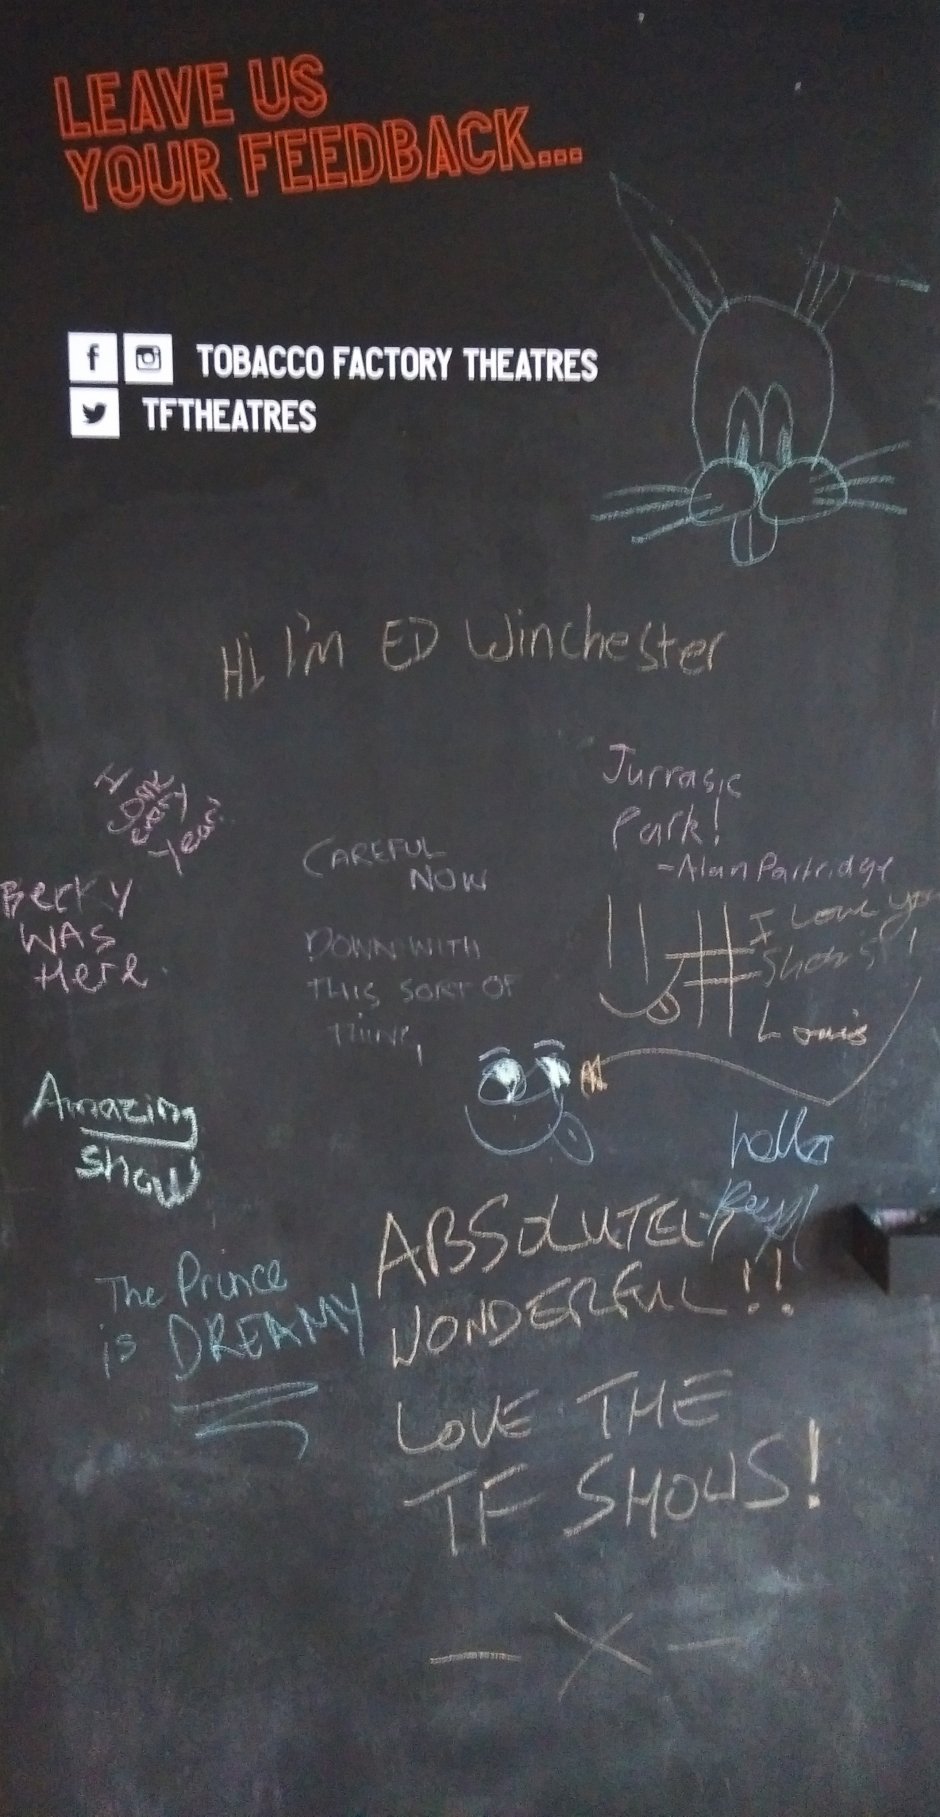 LEAVE US
YOUR FEEDBACK...
TOBACCO FACTORY THEATRES
TFTHEATRES
Hi I'm ED Winchester
Jurrasic
Park!
-Alan Partridge
Year!
CAREFUL
NOW
Berky
WAS
Here
DOWN WITH
THIS SORT OF
THING
I Love you
Shows!
Louis
Amazing
show
hello
ABSOLUTELY
WONDERFUL!!
The Prince
is DREAMY
LOVE THE
TF SHOWS!
- X -